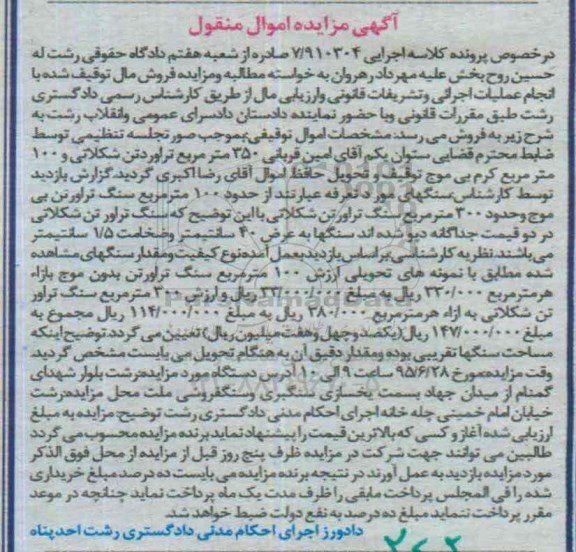 آگهی مزایده اموال منقول
درخصوص پرونده کلاسه اجرایی ۷/۹۱۰۳۰۴ صادره از شعبه هفتم دادگاه حقوقی رشت له
حسین روح بخش علیه مهرداد رهروان به خواسته مطالبه ومزایده فروش مال توقیف شده با
انجام عملیات اجرائی وتشریفات قانونی وارزیابی مال از طریق کارشناس رسمی دادگستری
رشت طبق مقررات قانونی وبا حضور نماینده دادستان دادسرای عمومی وانقلاب رشت به
شرح زیر به فروش می رسد: مشخصات اموال توقیفی:بموجب صورتجلسه تنظیمی توسط
ضابط محترم قضایی ستوان یکم آقای امین قربانی ۳۵۰ متر مربع تراورتن شکلاتی و ۱۰۰
متر مربع کرم بی موج توقیف و تحویل حافظ اموال آقای رضا اکبری گردید.گزارش بازدید
توسط کارشناس:سنگهای مورد تعرفه عبارتند از حدود ۱۰۰ مترمربع سنگ تراورتن بی
موج وحدود ۳۰۰ مترمربع سنگ تراورتن شکلاتی با این توضیح که سنگ تراور تن شکلاتی
در دو قیمت جداگانه دیده شده اند سنگها به عرض ۴۰ سانتیمتر وضخامت ۱/۵ سانتیمتر
می باشند.نظریه کارشناسی:براساس بازدید بعمل آمده نوع کیفیت ومقدار سنگهای مشاهده
شده مطابق با نمونه های تحویلی ارزش ۱۰۰ مترمربع سنگ تراورتن بدون موج بازاء
هرمترمربع ۳۳۰/۰۰۰ ریال به مبلغ ۳۳/۰۰۰/۰۰۰ ریال و ارزش ۳۰۰ مترمربع سنگ تراور
تن شکلاتی به ازاء هرمترمربع ۳۸۰/۰۰۰ ریال به مبلغ ۱۱۴/۰۰۰/۰۰۰ ریال مجموع به
مبلغ ۱۴۷/۰۰۰/۰۰۰ ریال(یکصد وچهل وهفت میلیون ریال)تعیین می گردد.توضیح اینکه
مساحت سنگها تقریبی بوده ومقدار دقیق آن به هنگام تحویل می بایست مشخص گردید.
وقت مزایده:مورخ ۹۵/۶/۲۸ ساعت ۹ الی ۱۰ آدرس دستگاه مورد مزایده:رشت بلوار شهدای
گمنام از میدان جهاد بسمت یخسازی سنگبری وسنگفروشی ملت محل مزایده:رشت
خیابان امام خمینی چله خانه اجرای احکام مدنی دادگستری رشت توضیح مزایده به مبلغ
ارزیابی شده آغاز و کسی که بالاترین قیمت را پیشنهاد نماید برنده مزایده محسوب می گردد
طالبین می توانند جهت شرکت در مزایده ظرف پنج روز قبل از مزایده از محل فوق الذکر
مورد مزایده بازدید به عمل آورند در نتیجه برنده مزایده می بایست ده درصد مبلغ خریداری
شده را فی المجلس پرداخت مابقی را ظرف مدت یک ماه پرداخت نماید چنانچه در موعد
مقرر پرداخت ننماید مبلغ ده درصد به نفع دولت ضبط خواهد شد.
دادورز اجرای احکام مدنی دادگستری رشت احدپناه